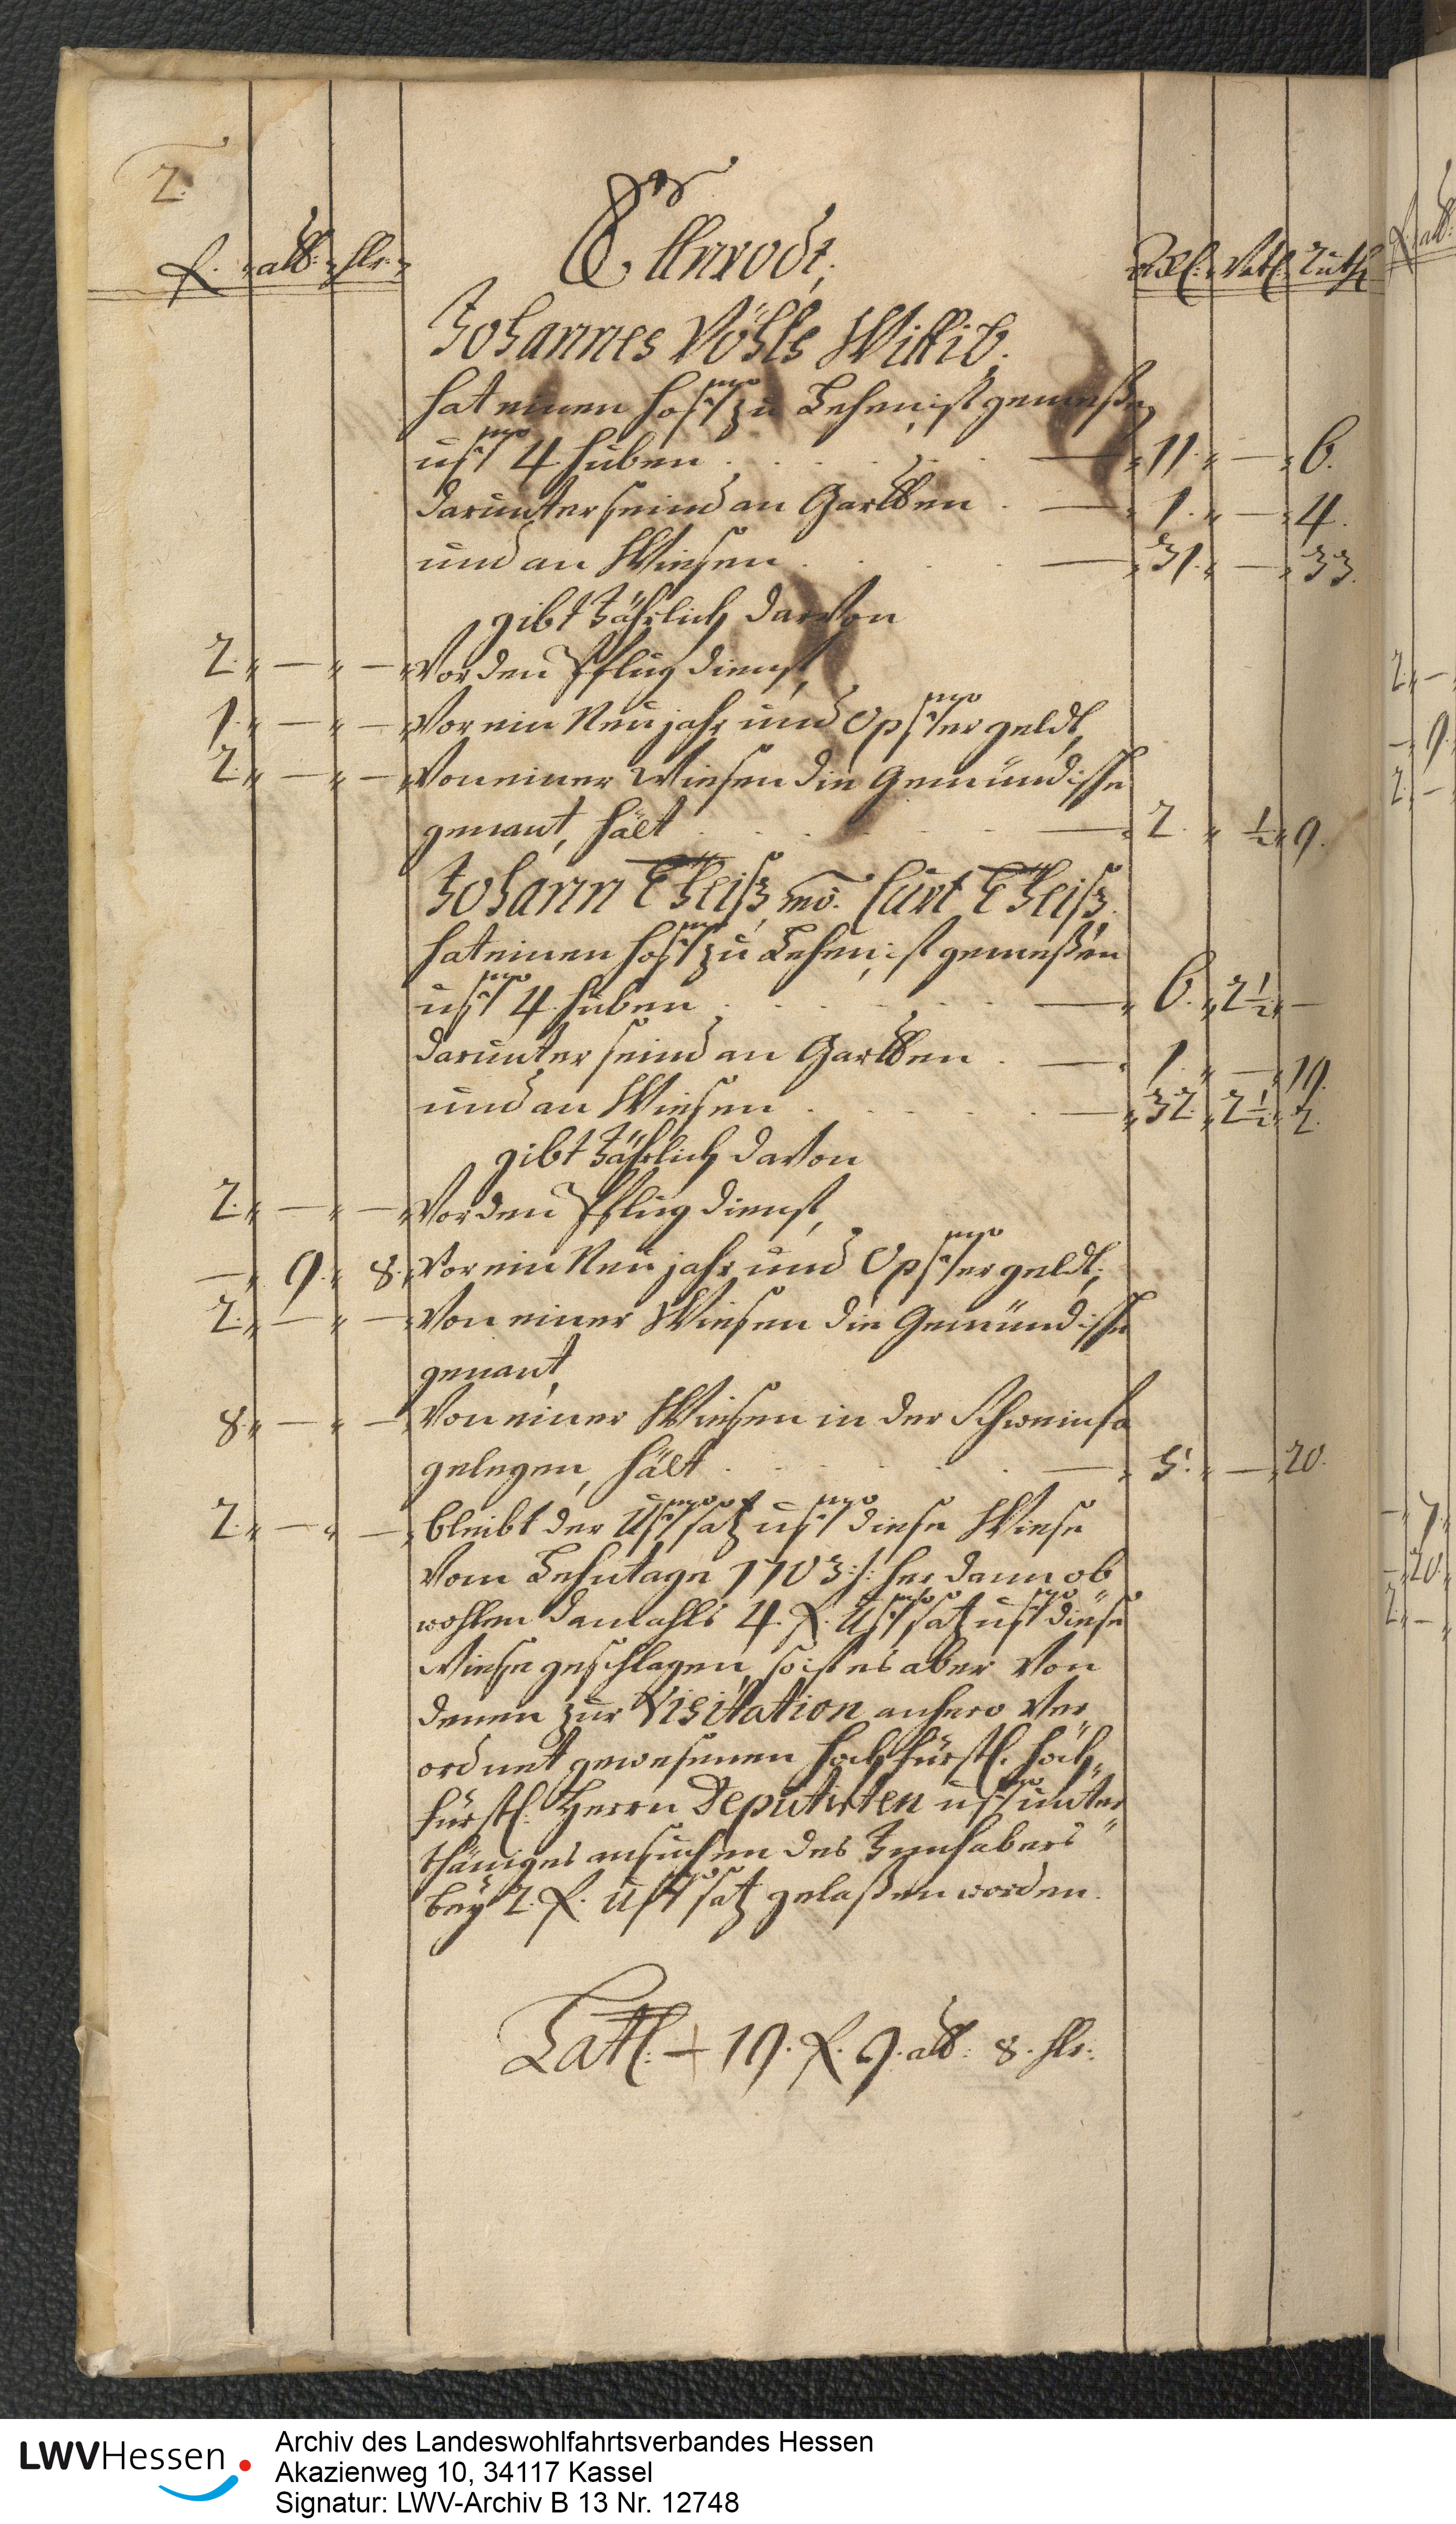 2.
f. alb: hlr. Ellnrodt, Ack. Vrtl. Ruth
Johannes Völls Wittib.
hat einen hoff zu Lehen, ist gemeßen
uff 4 huben . . . . — 11. — 6.
darunter seind an Garthen . — 1. — 4.
und an Wiesen . . . — 31. — 33.
gibt Jährlich darvon
2. — — Vor den Pflug dienst,
1. — — Vor ein Neu jahr und Opffer geldt,
2. — — Von einer Wiesen die Gemündische
genant, hält . . . . — 2. ½ 9.
Johann Theiß, mo. Curt Theiß.
hat einen hoff zu Lehen, ist gemeßen
uff 4 huben . . . . — 6. 2½ —
darunter seind an Garthen . — 1. — 19.
und an Wiesen . . . . — 32. 2½ 2.
gibt Jährlich darvon
2. — — Vor den Pflug dienst,
— 9. 8. Vor ein Neu jahr und Opffer geldt,
2. — — Von einer Wiesen die Gemündische
genant,
8. — — Von einer Wiesen in der Schweinfa
gelegen, hält . . . . — 5. — 20.
2. — — bleibt der Uffsatz uff diese Wiese
Vom Lehntage 1703 /: her dann ob
wohlen damahls 4. f. Uffsatz uff diese
Wiese geschlagen, so ist es aber Von
denen zur Visitation anhero Ver
ordnet gewesenen hoch fürstl. hoch
fürstl. Herrn Deputirten uff unter
thäniges ansuchen des Innhabers
bey 2. f. Uffsatz gelaßen worden.
Latl. — 19. f. 9. alb: 8. hlr.
LWVHessen
Archiv des Landeswohlfahrtsverbandes Hessen
Akazienweg 10, 34117 Kassel
Signatur: LWV-Archiv B 13 Nr. 12748